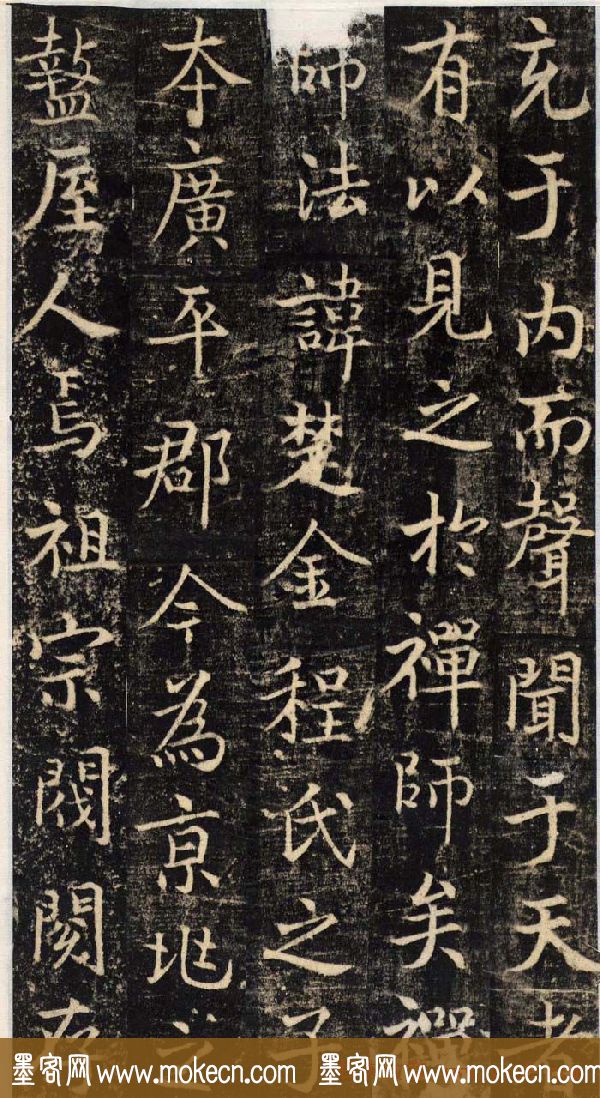 充于内而聲聞于天者
有以見之於禪師矣禪
師法諱楚金程氏之子
夲廣平郡今為亰兆之
盩厔人焉祖宗閥閱存
墨客网 www.mokecn.com 墨客网 www.mokecn.com